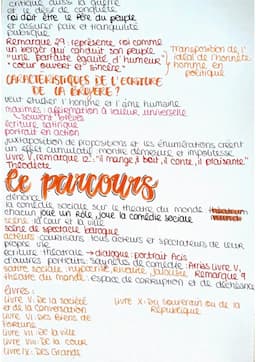 critique aussi la guerre
et le désir de conquête.
roi doit être le Père du peuple
et assurer paix et tranquillité
publique.
Remarque 29 : représente roi comme
un berger qui conduit son peuple
"une parfaite égalité d'humeur"
"coeur ouvert et sincère"
Transposition de l'
idéal de l'honnête
homme en
politique
CARACTÉRISTIQUES DE L'ÉCRITURE
DE LA BRUYÈRE ?
veut étudier l'homme et l'âme humaine
maximes : affirmation à valeur universelle
↳ souvent brèves
écriture satirique
portrait en action
juxtaposition de propositions et les énumérations créent
un effet cumulatif montre démesure et impolitesse.
Livre V, remarque 12 : "il mange, il boit, il conte, il plaisante."
Théodecte
Le parcours
dénonce
la comédie sociale sur le theatre du monde
chacun joue un rôle, joue la comédie sociale
scène : la cour et la ville
scène de spectacle
acteurs : courtisans tous acteurs et spectateurs de leur
propre vie
écriture théâtrale → dialogue : portrait Acis
d'autres portraits : saynètes de comédie : Arrias Livre V,
satire sociale : hypocrisie, rivalité, jalousie. Remarque 9
théâtre du monde : espace de corruption et de déchéance
Livres :
Livre V : De la société
et de la conversation
Livre VI : Des Biens de
Fortune
Livre VII : De la ville
Livre VIII : De la cour
Livre IX : Des Grands
Livre X : Du souverain ou de la
République